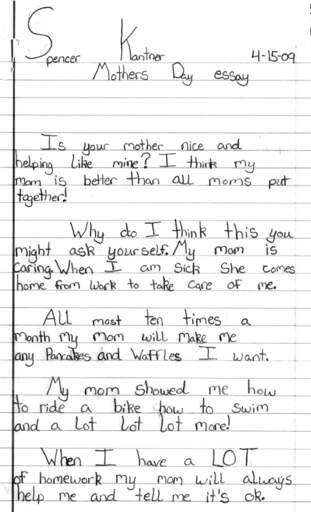 Spencer Kantner 4-15-09
Mothers Day essay
Is your mother nice and
helping like mine? I think my
mom is better than all moms put
together!
Why do I think this you
might ask yourself. My mom is
caring. When I am sick she comes
home from work to take care of me.
All most ten times a
month my mom will make me
any Pancakes and Waffles I want.
My mom showed me how
to ride a bike how to swim
and a lot lot lot more!
When I have a LOT
of homework my mom will always
help me and tell me it's ok.